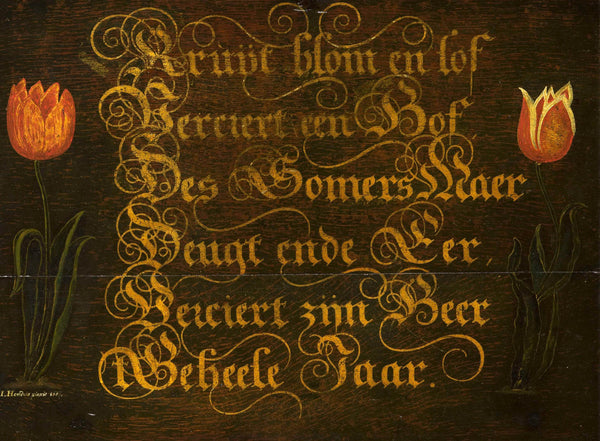 Kruÿt blom en lof
Verciert een Hof,
Des Somers Maer
Deugt ende Eer,
Verciert zijn Heer
tGeheele Jaar.